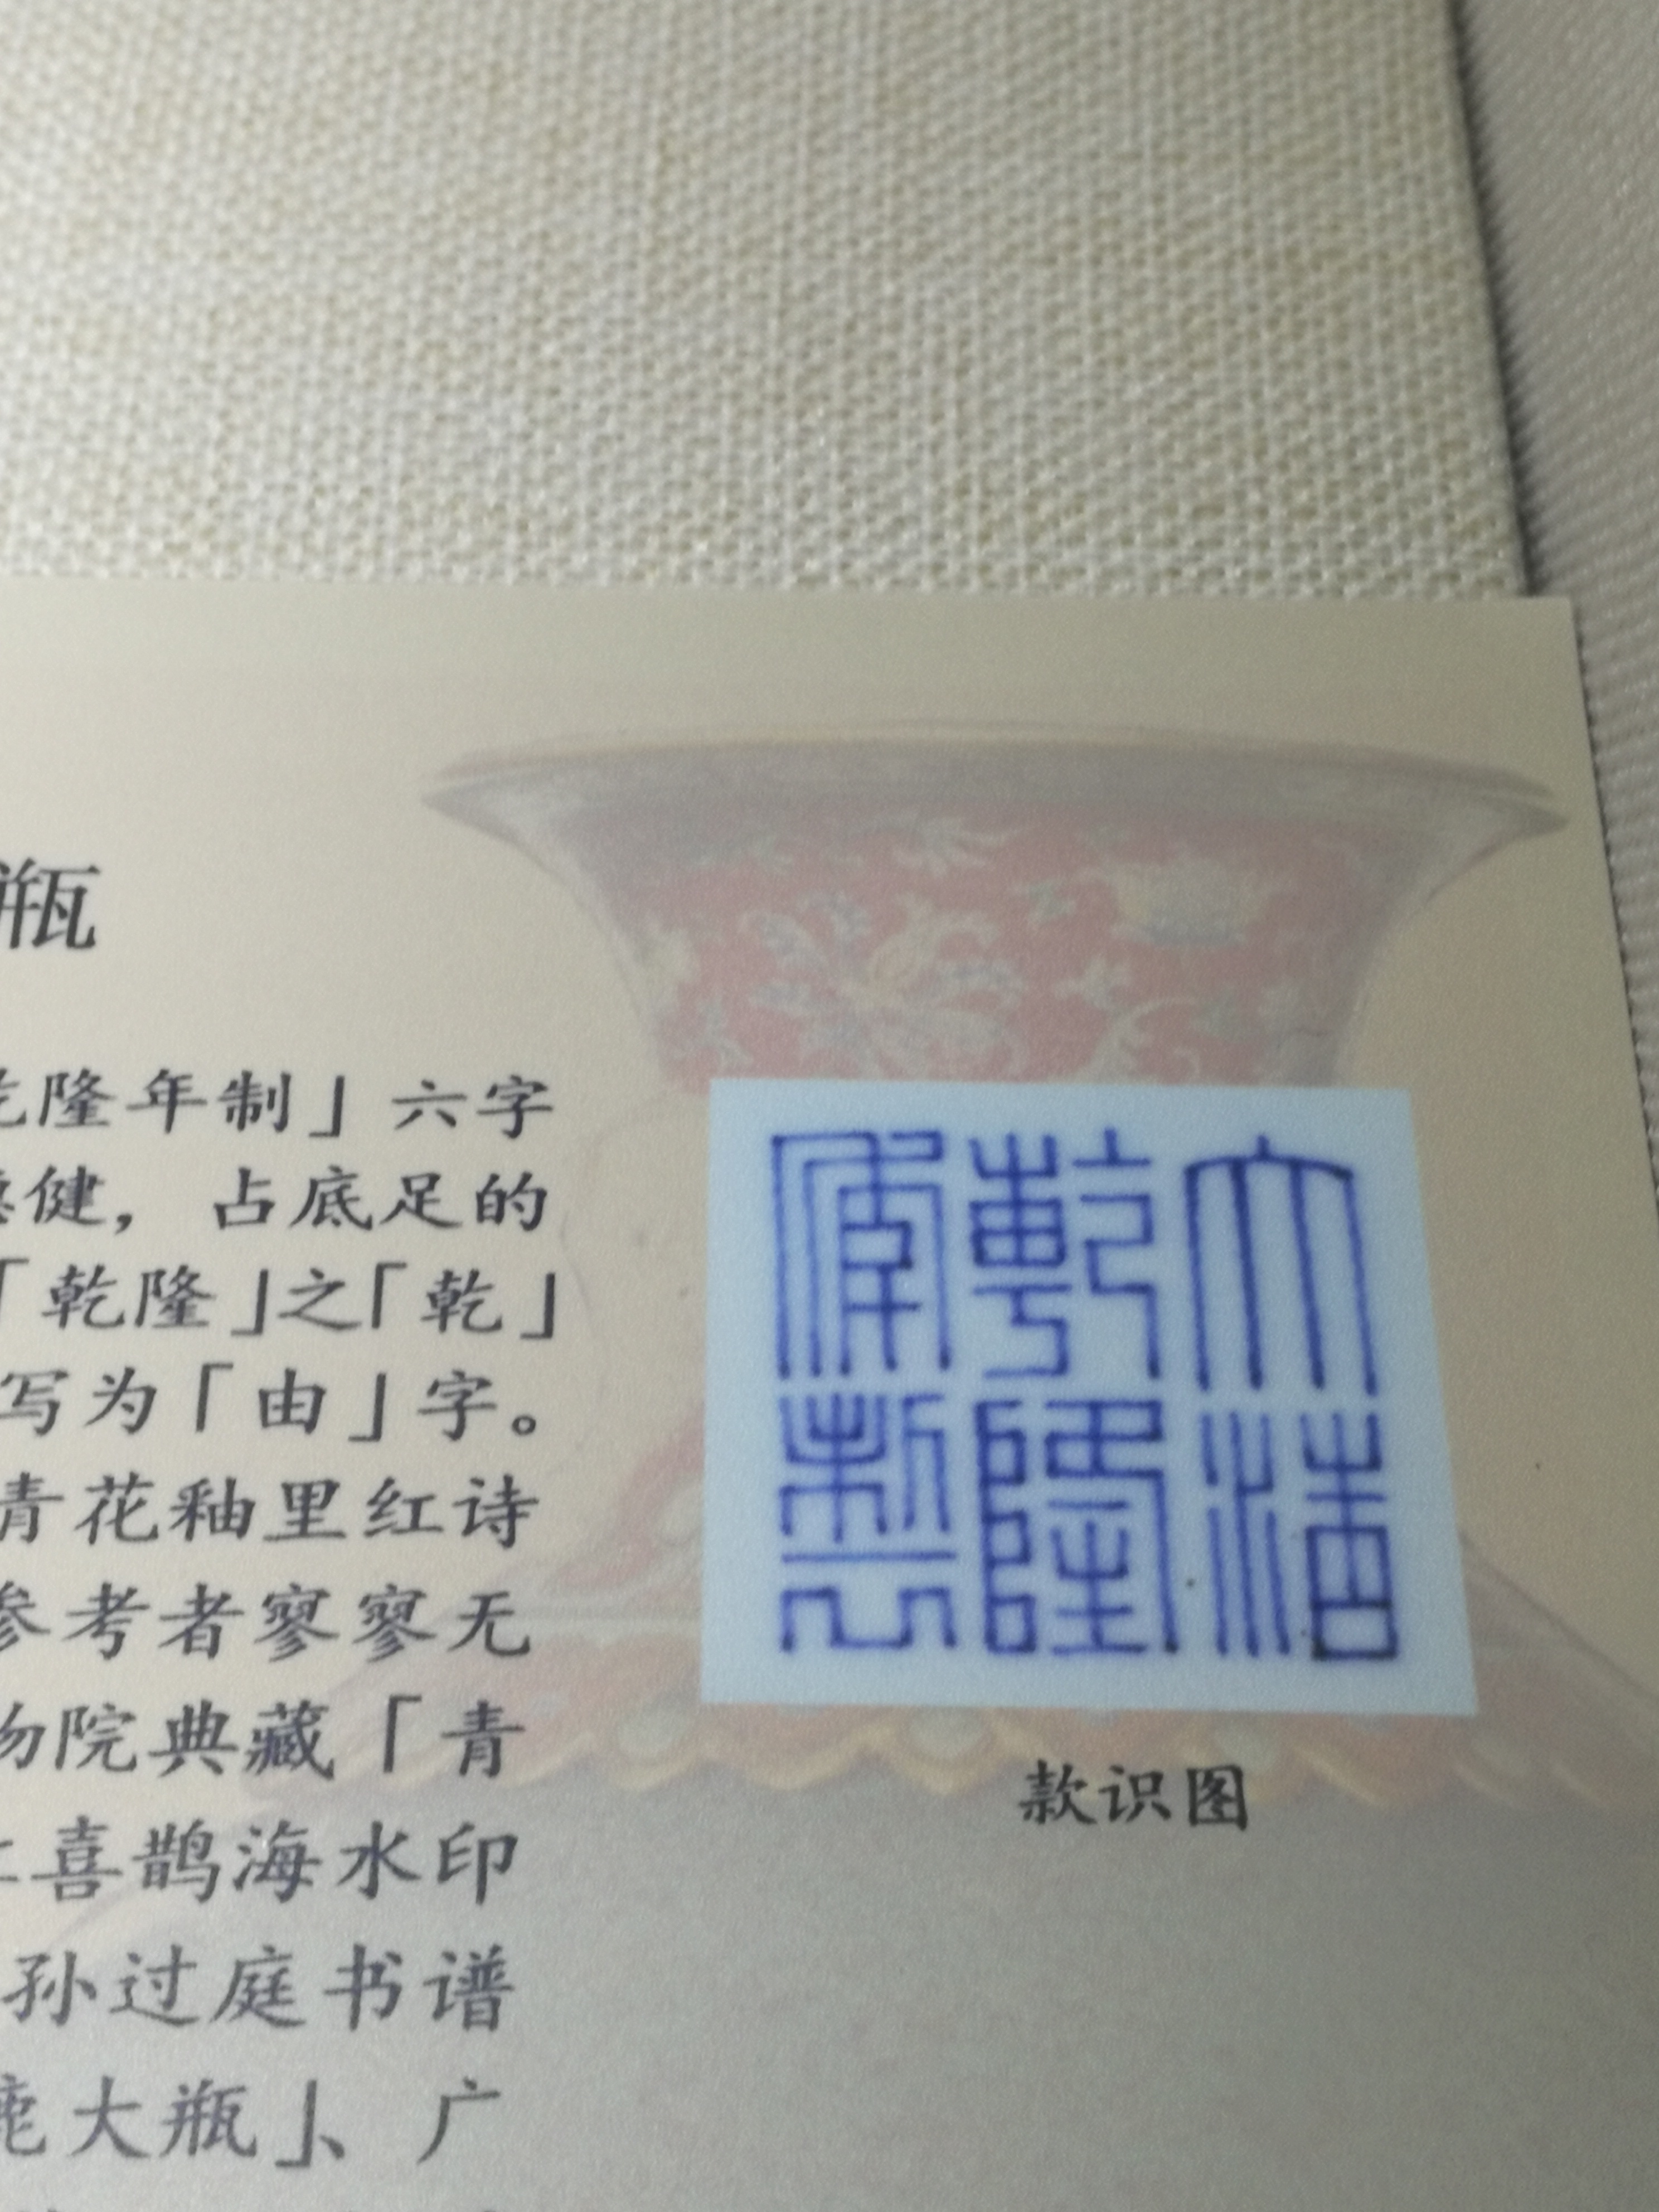 瓶
隆年制」六字
健，占底足的
「乾隆」之「乾」
写为「由」字。
青花釉里红诗
参考者寥寥无
物院典藏「青
喜鹊海水印
孙过庭书谱
大瓶」、广
大清
乾隆
年製
款识图